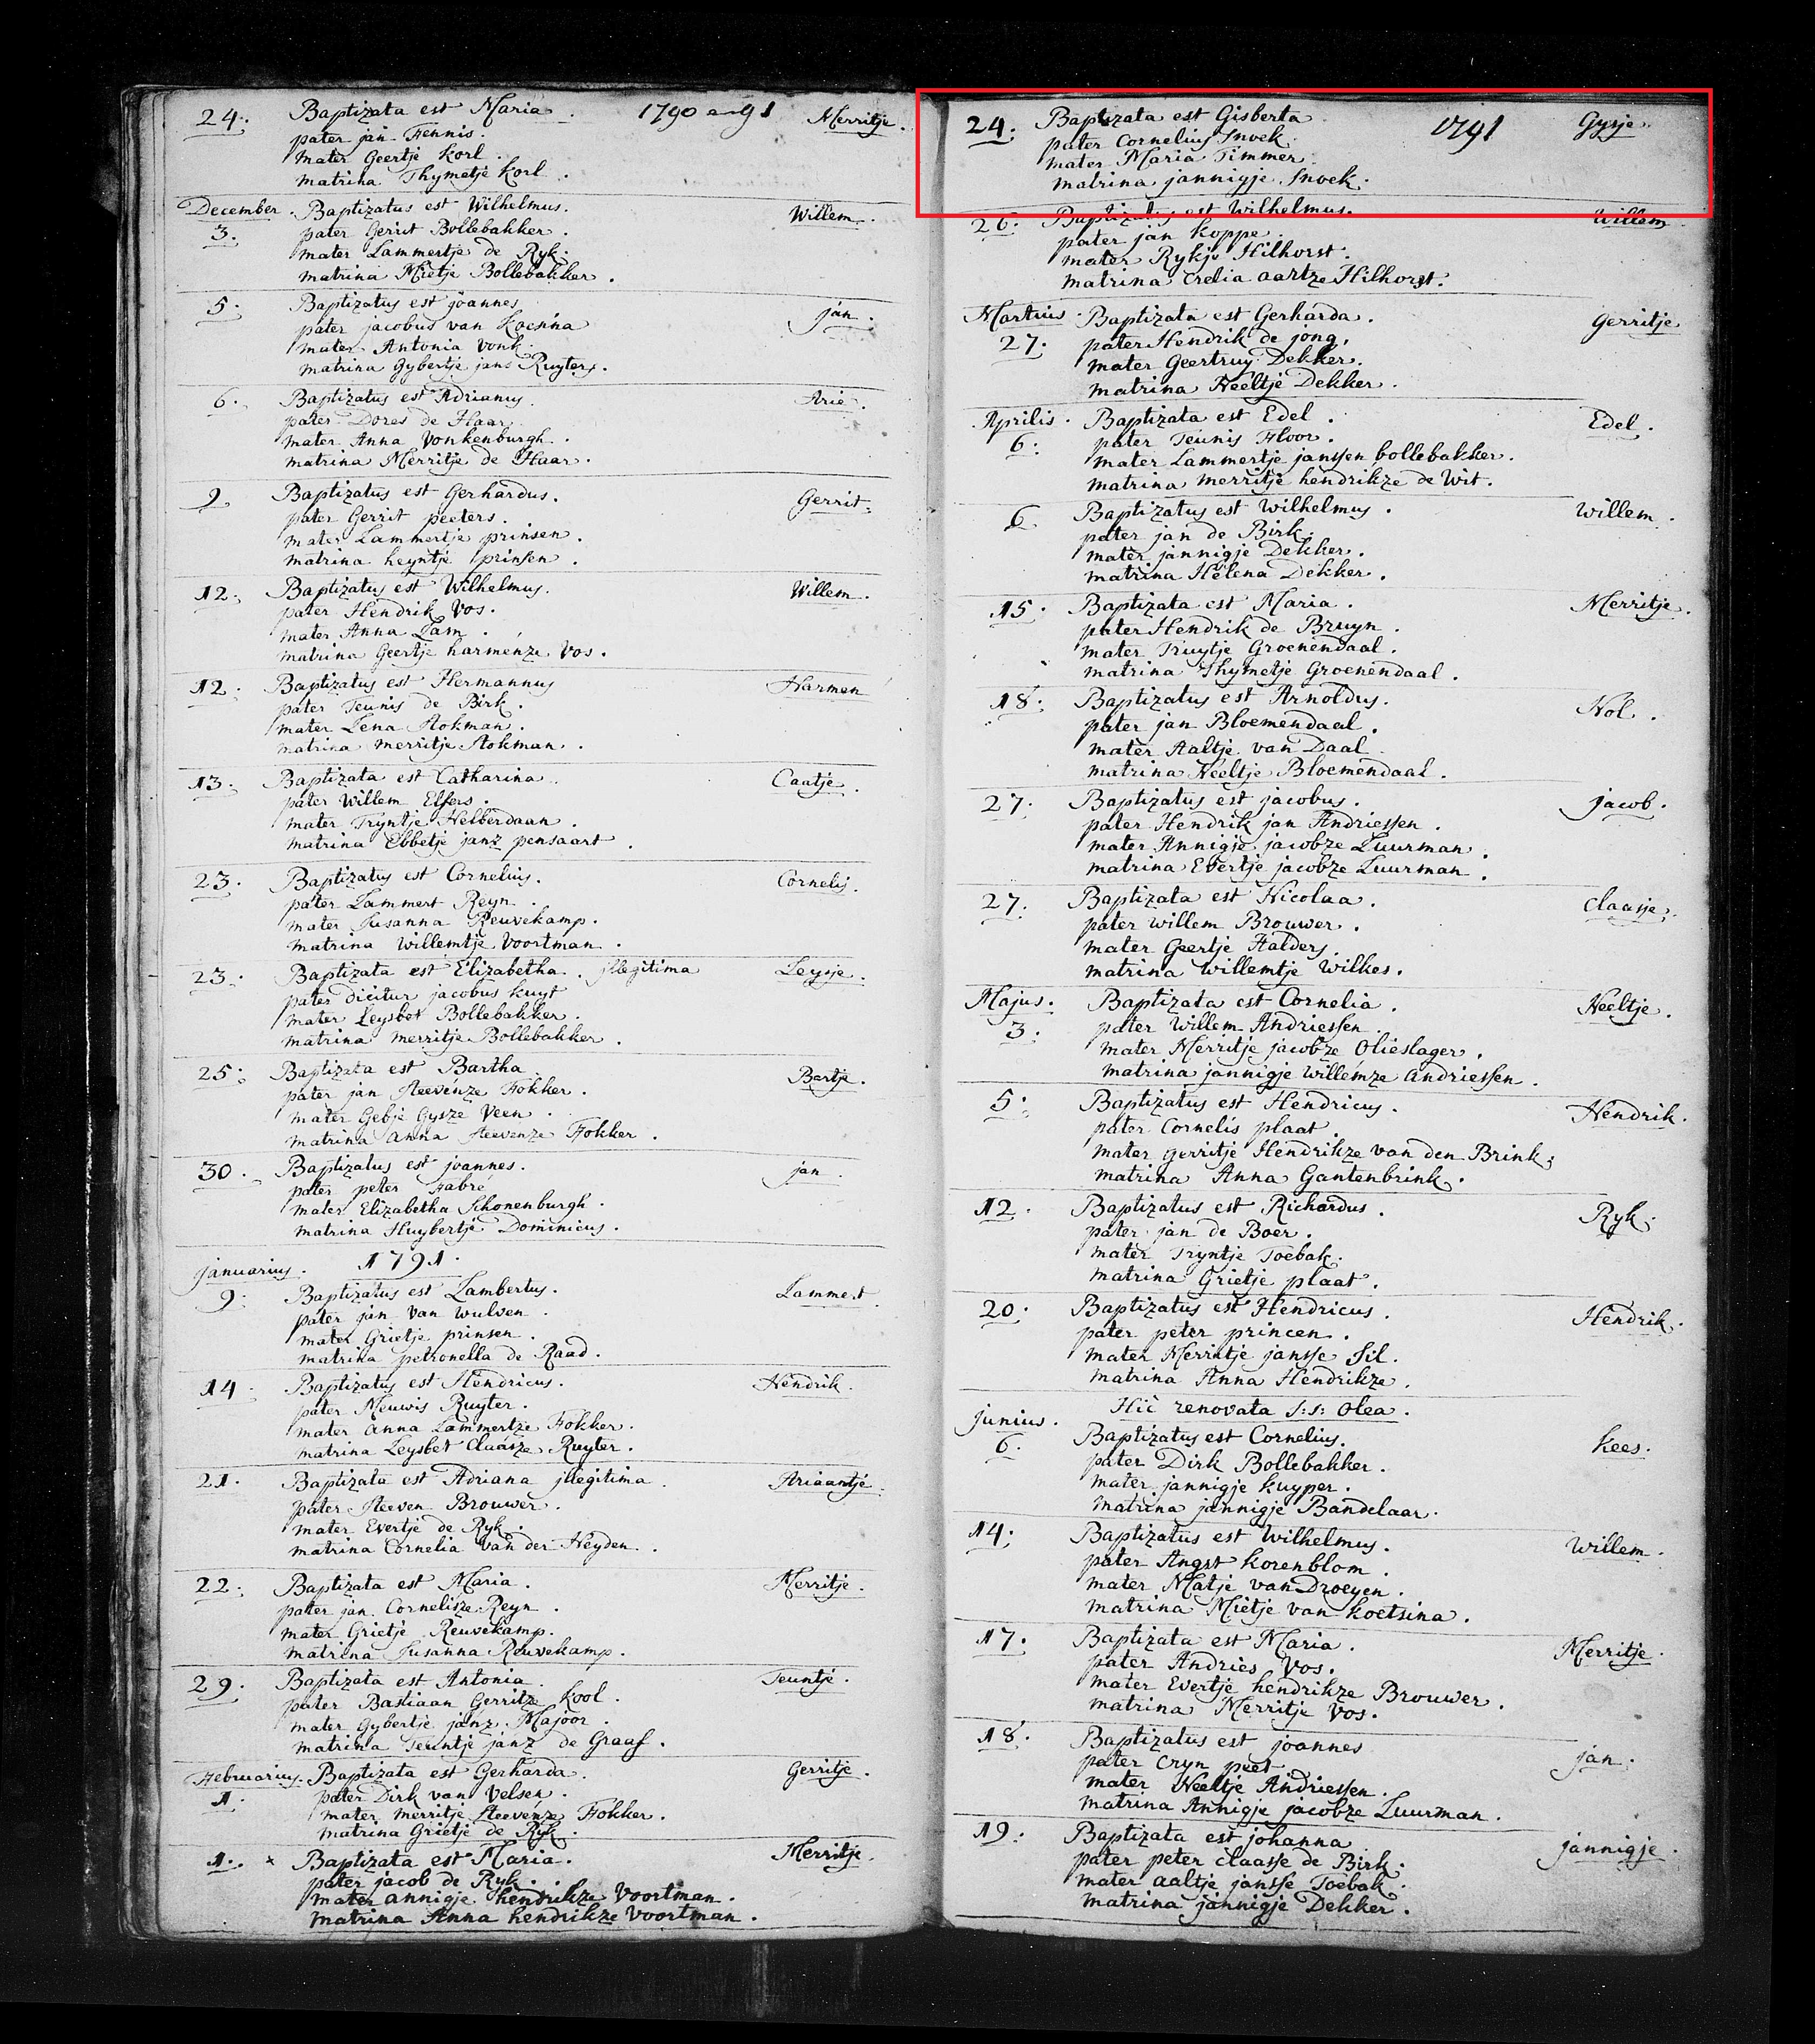 24. Baptizata est Maria. 1790 en 91 Merritje.
pater jan Fennis.
mater Geertje Korl.
matrina Thymetje Korl.
December. Baptizatus est Wilhelmus. Willem.
3. pater Gerrit Bollebakker.
mater Lammertje de Ryk.
matrina Mietje Bollebakker.
5. Baptizatus est joannes jan.
pater jacobus van
mater Antonia Vonk.
matrina Gybertje jans Ruyters.
6. Baptizatus est Adrianus. Arie.
pater Dores de Haar.
mater Anna Vonkenburgh.
matrina Merritje de Haar.
9. Baptizatus est Gerhardus. Gerrit.
pater Gerrit peeters.
mater Lammertje prinsen.
matrina heyntje prinsen.
12. Baptizatus est Wilhelmus. Willem.
pater Hendrik Vos.
mater Anna Lam.
matrina Geertje harmenze Vos.
12. Baptizatus est Hermannus Harmen
pater Teunis de Birk.
mater Lena Stokman.
matrina Merritje Stokman.
13. Baptizata est Catharina. Caatje.
pater Willem Elfers.
mater Tryntje Helberdaan.
matrina Ebbetje janz pensaart.
23. Baptizatus est Cornelius. Cornelis.
pater Lammert Reyn.
mater Susanna Reuvekamp.
matrina Willemtje Voortman.
23. Baptizata est Elizabetha. jllegitima Leysje.
pater dicitur jacobus kuyt
mater Leysbet Bollebakker.
matrina Merritje Bollebakker.
25. Baptizata est Bartha. Bertje.
pater jan Steevenze Fokker.
mater Gebje Gysze Veen.
matrina Anna Steevenze Fokker.
30. Baptizatus est joannes. jan.
pater peter Fabré
mater Elizabetha Schonenburgh.
matrina Huybertje Dominicus.
januarius. 1791.
9. Baptizatus est Lambertus. Lammert.
pater jan van Wulven.
mater Grietje prinsen.
matrina petronella de Raad.
14. Baptizatus est Hendricus. Hendrik.
pater Meuwis Ruyter.
mater Anna Lammertze Fokker.
matrina Leysbet Claasze Ruyter.
21. Baptizata est Adriana jllegitima. Ariaantje.
pater Steeven Brouwer.
mater Evertje de Ryk.
matrina Cornelia van der Heyden.
22. Baptizata est Maria. Merritje.
pater jan Cornelisze Reyn.
mater Grietje Reuvekamp.
matrina Susanna Reuvekamp.
29. Baptizata est Antonia. Teuntje.
pater Bastiaan Gerritze Kool.
mater Gybertje janz Majoor.
matrina Teuntje janz de Graaf.
Februarius. Baptizata est Gerharda. Gerritje.
1. pater Dirk van Velsen.
mater Merritje Steevenze Fokker.
matrina Grietje de Ryk.
1. x Baptizata est Maria. Merritje.
pater jacob de Ryk.
mater annigje hendrikze Voortman.
matrina Anna hendrikze Voortman.
24. Baptizata est Gisberta 1791 Gysje.
pater Cornelius Snoek.
mater Maria Timmer.
matrina jannigje Snoek.
26. Baptizatus est Wilhelmus. Willem.
pater jan Koppe.
mater Rykje Hilhorst.
matrina Crelia aartze Hilhorst.
Martius. Baptizata est Gerharda. Gerritje
27. pater Hendrik de jong.
mater Geertruy Dekker.
matrina Neeltje Dekker.
Aprilis. Baptizata est Edel. Edel.
6. pater Teunis Floor.
mater Lammertje janssen bollebakker.
matrina Merritje hendrikze de Wit.
6 Baptizatus est Wilhelmus. Willem.
pater jan de Birk.
mater jannigje Dekker.
matrina Helena Dekker.
15. Baptizata est Maria. Merritje.
pater Hendrik de Bruyn.
mater Truytje Groenendaal.
matrina Thymetje Groenendaal.
18. Baptizatus est Arnoldus. Nol.
pater jan Bloemendaal.
mater Aaltje van Daal.
matrina Neeltje Bloemendaal.
27. Baptizatus est jacobus. jacob.
pater Hendrik jan Andriessen.
mater Annigje jacobze Luurman.
matrina Evertje jacobze Luurman.
27. Baptizata est Nicolaa. Claasje.
pater Willem Brouwer.
mater Geertje Halders
matrina Willemtje Wilkes.
Majus. Baptizata est Cornelia. Neeltje.
3. pater Willem Andriessen.
mater Merritje jacobze Olieslager.
matrina jannigje Willemze Andriessen.
5. Baptizatus est Hendricus. Hendrik.
pater Cornelis plaat.
mater Gerritje Hendrikze van den Brink.
matrina Anna Gantenbrink.
12. Baptizatus est Richardus. Ryk.
pater jan de Boer.
mater Tryntje Toebak.
matrina Grietje plaat.
20. Baptizatus est Hendricus. Hendrik.
pater peter princen.
mater Merritje jansse Sil.
matrina Anna Hendrikze.
Hic renovata S:S: Olea.
junius.
6. Baptizatus est Cornelius. Kees.
pater Dirk Bollebakker.
mater jannigje Kuyper.
matrina jannigje Bandelaar.
14. Baptizatus est Wilhelmus. Willem.
pater Angst Korenblom.
mater Matje van Droeyen.
matrina Mietje van Koetsina.
17. Baptizata est Maria. Merritje.
pater Andries Vos.
mater Evertje hendrikze Brouwer.
matrina Merritje Vos.
18. Baptizatus est joannes jan.
pater Cryn peet
mater Neeltje Andriessen.
matrina Annigje jacobze Luurman.
19. Baptizata est johanna jannigje.
pater peter Claasse de Birk.
mater aaltje jansse Toebak.
matrina jannigje Dekker.